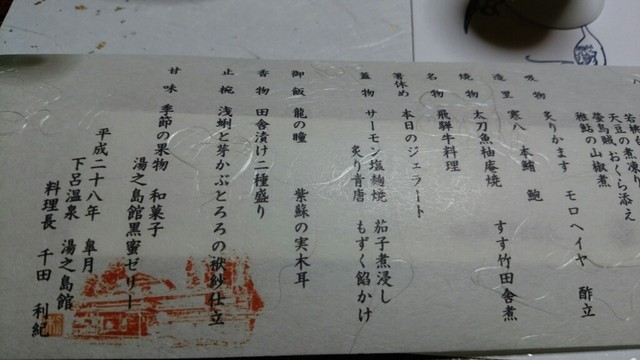 若桃甘
天豆の煮凍り
蛍烏賊 おくら添え
稚鮎の山椒煮
吸物 炙りかます モロヘイヤ 酢立
造里 寒八 本鮪 鮑
すす竹田舎煮
焼物 太刀魚柚庵焼
名物 飛騨牛料理
箸休め 本日のジェラート
蓋物 サーモン塩麹焼 茄子煮浸し
炙り青唐 もずく餡かけ
御飯 龍の瞳 紫蘇の実木耳
香物 田舎漬け二種盛り
止椀 浅蜊と芽かぶとろろの袱紗仕立
甘味 季節の果物 和菓子
湯之島館黒蜜ゼリー
平成二十八年 皐月
下呂温泉 湯之島館
料理長 千田 利紀